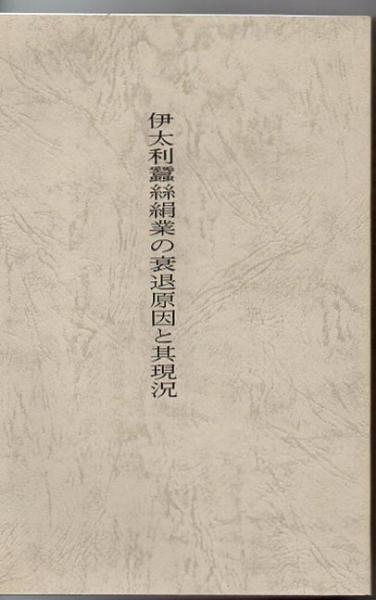 伊太利蠶絲絹業の衰退原因と其現況